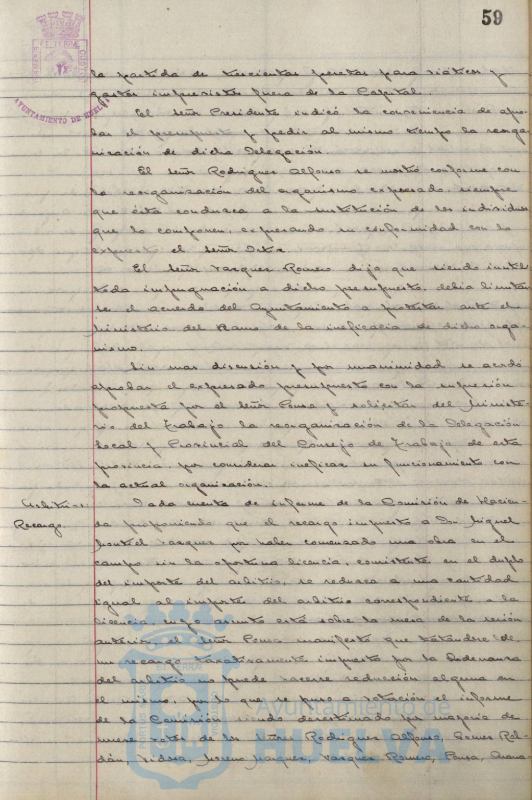 59
AYUNTAMIENTO DE HUELVA
la partida de trescientas pesetas para viáticos y
gastos imprevistos fuera de la Capital.
El señor Presidente indicó la conveniencia de apro-
bar el presupuesto y pedir al mismo tiempo la reorga-
nización de dicha Delegación
El señor Rodriguez Alfonso se mostró conforme con
la reorganización del organismo expresado, siempre
que ésta conduzca a la sustitución de los individuos
que lo componen, expresando su conformidad con lo
expuesto el señor
El señor Vazquez Romero dijo que siendo inutil
toda impugnación a dicho presupuesto, debia limitar-
se el acuerdo del Ayuntamiento a protestar ante el
Ministerio del Ramo de la ineficacia de dicho orga-
nismo.
Sin mas discusión y por unanimidad se acordó
aprobar el expresado presupuesto con la supresión
propuesta por el señor Ponce y solicitar del Ministe-
rio del Trabajo la reorganización de la Delegación
Local y Provincial del Consejo de Trabajo de esta
provincia, por considerar ineficaz su funcionamiento con
la actual organización.
Arbitrios.
Recargo.
Dada cuenta de informe de la Comisión de Hacien-
da proponiendo que el recargo impuesto a Don Miguel
Montiel Vazquez por haber comenzado una obra en el
campo sin la oportuna licencia, consistente en el duplo
del importe del arbitrio, se reduzca a una cantidad
igual al importe del arbitrio correspondiente a la
licencia, cuyo asunto está sobre la mesa de la sesión
anterior, el señor Ponce manifestó que tratándose de
un recargo taxativamente impuesto por la Ordenanza
del arbitrio no puede hacerse reducción alguna en
el mismo, por lo que se puso a votación el informe
de la Comisión siendo desestimado por mayoria de
nueve votos de los Sres Rodriguez Alfonso, Gomez Rol-
dán, Moreno Marquez, Vazquez Romero, Ponce,
Ayuntamiento de
HUELVA